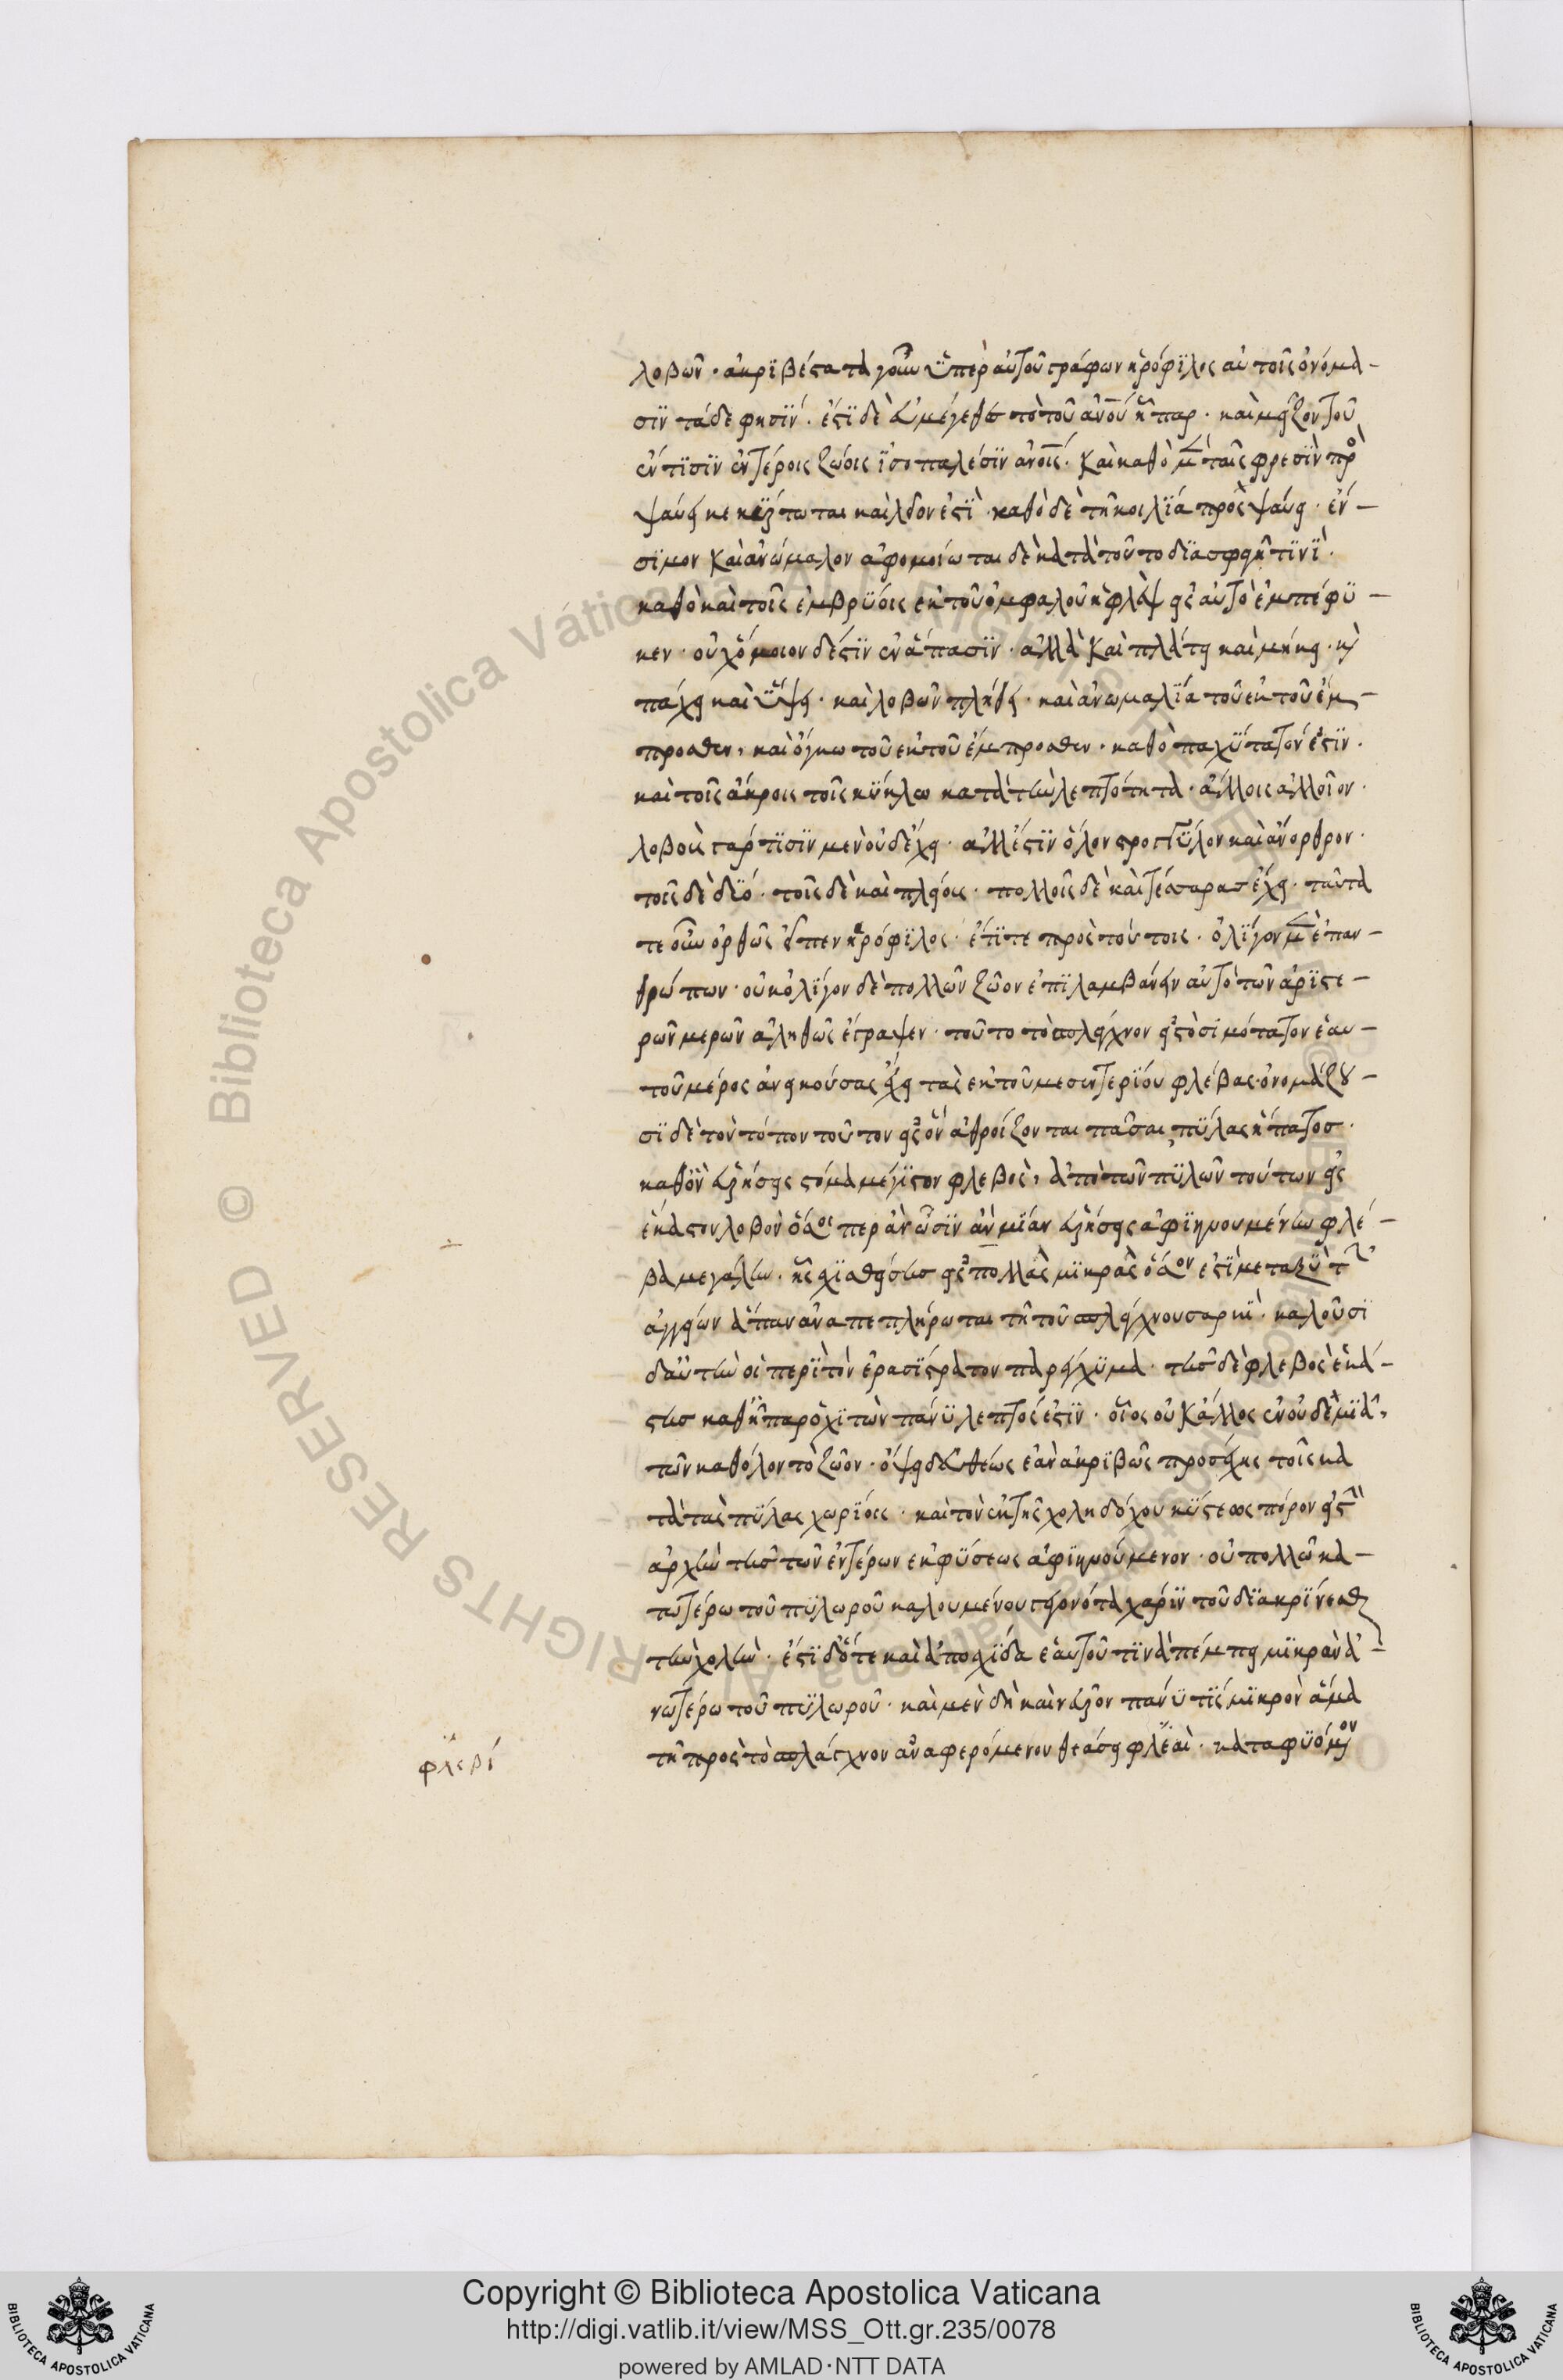 λοβῶν· ἀκριβέστατα γοῦν ὑπὲρ αὐτοῦ γράφων ἡρόφιλος αὐτοῖς ὀνόμα-
σιν τάδε φησίν· ἔστι δὲ εὐμέγεθες τὸ τοῦ ἀνου ἧπαρ· καὶ μεῖζον τοῦ
ἐν τισὶν ἑτέροις ζώοις ἰσοπαλέσιν ἀνοις· καὶ καθὸ μὲν ταῖς φρεσὶν προ
ψαύει κεκύρτωται καὶ λεῖον ἐστὶ· καθὸ δὲ τῆ κοιλία προσψαύει· ἐν-
σιμον καὶ ἀνώμαλον ἀφομοίωται δὲ κατὰ τοῦτο διασφαγῆ τινὶ·
καθὸ καὶ τοῖς ἐμβρύοις ἐκ τοῦ ὀμφαλοῦ ἡ φλὲψ εἰς αὐτὸ ἐμπέφυ-
κεν· οὐχ ὅμοιον δέστιν ἐν ἅπασιν· ἀλλὰ καὶ πλάτει καὶ μήκει· καὶ
πάχει καὶ ὕψει· καὶ λοβῶν πλήθει· καὶ ἀνωμαλία τοῦ ἐκ τοῦ ἔμ-
προσθεν, καὶ ὄγκω τοῦ ἐκ τοῦ ἔμπροσθεν· καθὸ παχύτατόν ἐστιν·
καὶ τοῖς ἄκροις τοῖς κύκλω κατὰ τὴν λεπτότητα· ἄλλοις ἀλλοῖον·
λοβοὺς γάρ τισιν μὲν οὐδ' ἔχει· ἀλλ' ἔστιν ὅλον στρογγύλον καὶ ἄνορθρον·
τοῖς δὲ δύο· τοῖς δὲ καὶ πλείους· πολλοῖς δὲ καὶ τέσσαρας ἔχει· ταῦτά
τε οὖν ὀρθῶς εἶπεν ἡρόφιλος· ἔτι τε πρὸς τούτοις· ὀλίγον μὲν ἐπ' ἀν-
θρώπων· οὐκ ὀλίγον δὲ πολλῶν ζῶον ἐπιλαμβάνειν αὐτὸ τῶν ἀριστε-
ρῶν μερῶν ἀληθῶς ἔγραψεν· τοῦτο τὸ σπλάγχνον εἰς τὸ σιμότατον ἑαυ-
τοῦ μέρος ἀνεικούσας ἔχει τὰς ἐκ τοῦ μεσεντερίου φλέβας· ὀνομάζου-
σι δὲ τὸν τόπον τοῦτον εἰς ὃν ἀθροίζονται πᾶσαι, πύλας ἥπατος·
καθ' ὃν εὑρήσεις στόμα μέγιστον φλεβὸς, ἀπὸ τῶν πυλῶν τούτων εἰς
ἕκαστον λοβὸν ὅσοι περ ἂν ὦσιν ἂν μίαν εὑρήσεις ἀφικνουμένην φλέ-
βα μεγάλην· ἧς σχισθείσης εἰς πολλὰς μικρὰς ὅσον ἐστὶ μεταξὺ τῶν
ἀγγείων ἅπαν ἀναπεπλήρωται τῆ τοῦ σπλάγχνου σαρκὶ· καλοῦσι
δ' αὐτὴν οἱ περὶ τὸν ἐρασίστρατον παρέγχυμα· τῆς δὲ φλεβὸς ἑκά-
στης καθ' ἧπαρ ὁ χιτὼν πάνυ λεπτός ἐστιν· οἷος οὐκ ἄλλος ἐν οὐδεμιᾶ,
τῶν καθ' ὅλον τὸ ζῶον· ὄψει δ' εὐθέως ἐὰν ἀκριβῶς προσέχης τοῖς κα
τὰ τὰς πύλας χωρίοις· καὶ τὸν ἐκ τῆς χοληδόχου κύστεως πόρον εἰς τὴν
ἀρχὴν τῆς τῶν ἐντέρων ἐκφύσεως ἀφικνούμενον· οὐ πολλῶ κα-
τωτέρω τοῦ πυλωροῦ καλουμένου γεγονότα χάριν τοῦ διακρίνεσθαι
τὴν χολὴν· ἔστι δ' ὅτε καὶ ἀποσχίδα ἑαυτοῦ τινὰ πέμπει μικρὰν ἀ-
νωτέρω τοῦ πυλωροῦ· καὶ μὲν δὴ καὶ νεῦρον πάνυ τι σμικρὸν ἅμα
τῆ πρὸς τὸ σπλάγχνον ἀναφερόμενον θεάση φλέβαὶ· καταφυόμενον
φλεβί